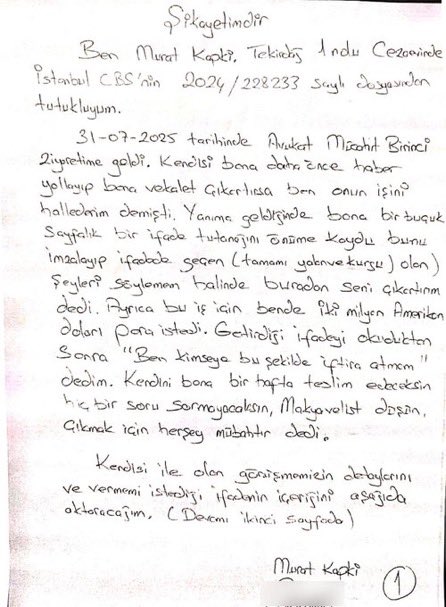 Şikayetimdir
Ben Murat Kapki, Tekirdağ 1 nolu Cezaevinde
İstanbul CBS'nin 2024/228233 sayılı dosyasından
tutukluyum.
31-07-2025 tarihinde Avukat Mücahit Birinci
ziyaretime geldi. Kendisi bana daha önce haber
yollayıp bana vekalet çıkartılırsa ben onun işini
hallederim demişti. Yanıma geldiğinde bana bir buçuk
Sayfalık bir ifade tutanağını önüme koydu bunu
imzalayıp ifadede geçen (tamamı yalan ve kurgu) olan)
Şeyleri söylemem halinde buradan seni çıkartırım
dedi. Ayrıca bu iş için bende iki milyon Amerikan
doları para istedi. Getirdiği ifadeyi okuduktan
Sonra "Ben kimseye bu şekilde iftira atmam"
dedim. Kendini bana bir hafta teslim edeceksin
hiç bir soru sormayacaksın, Makyavelist düşün,
Çıkmak için herşey mübahtır dedi.
Kendisi ile olan görüşmemizin detaylarını
ve vermemi istediği ifadenin içeriğini aşağıda
aktaracağım. (Devamı ikinci sayfada)
Murat Kapki
1